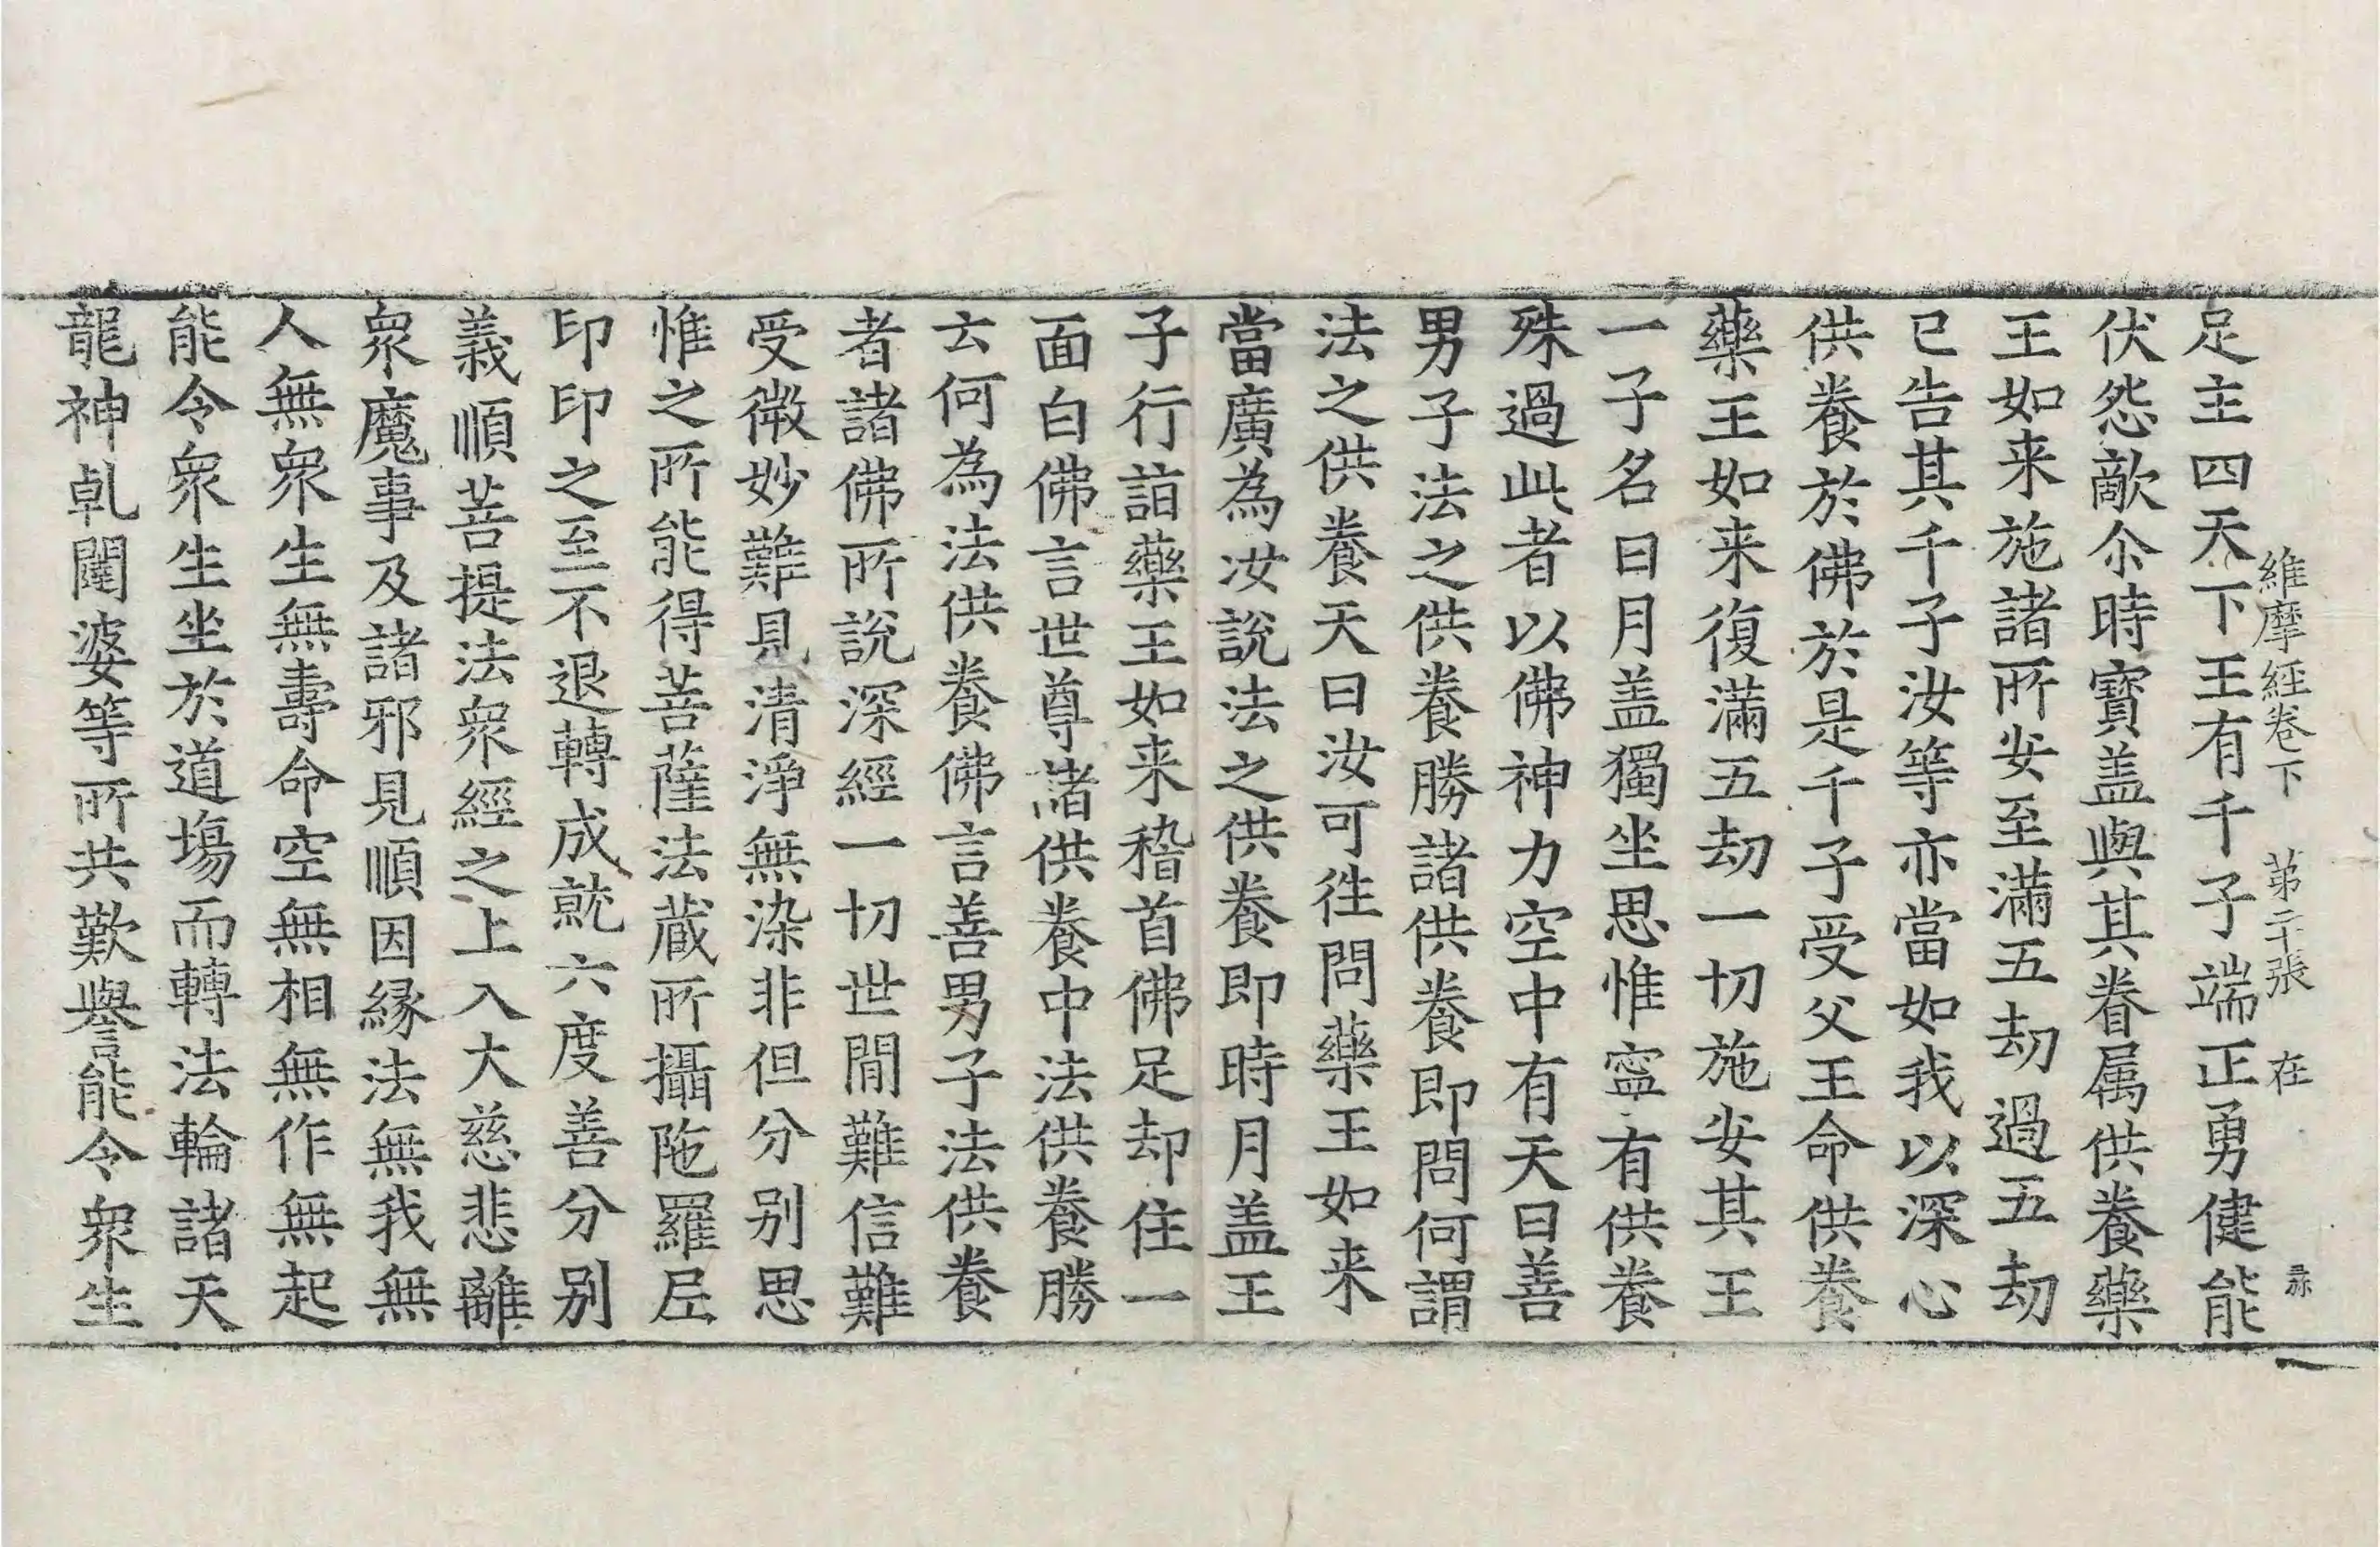 維摩經卷下 苐二十張 在
足主四天下王有千子端正勇健能
伏怨敵尒時寳盖與其眷属供養藥
王如来施諸所安至滿五劫過五劫
已告其千子汝等亦當如我以深心
供養於佛於是千子受父王命供養
藥王如来復滿五劫一切施安其王
一子名曰月盖獨坐思惟寧有供養
殊過此者以佛神力空中有天曰善
男子法之供養勝諸供養即問何謂
法之供養天曰汝可往問藥王如来
當廣為汝說法之供養即時月盖王
子行詣藥王如来稽首佛足却住一
面白佛言世尊諸供養中法供養勝
云何為法供養佛言善男子法供養
者諸佛所說深經一切世間難信難
受微妙難見清淨無染非但分别思
惟之所能得菩薩法蔵所攝陁羅尼
印印之至不退轉成就六度善分别
義順菩提法衆經之上入大慈悲離
衆魔事及諸邪見順因縁法無我無
人無衆生無壽命空無相無作無起
能令衆生坐於道塲而轉法輪諸天
龍神乹闥婆等所共歎譽能令衆生